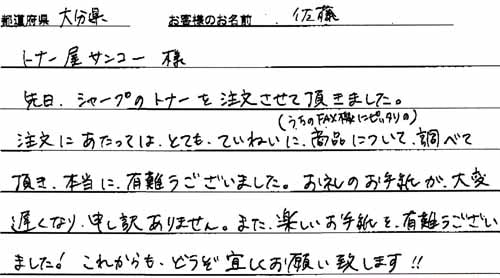 都道府県 大分県 お客様のお名前 佐藤
トナー屋サンコー 様
先日、シャープのトナーを注文させて頂きました。
(うちのFAX機にピッタリの)
注文にあたっては、とても、ていねいに、商品について、調べて
頂き、本当に、有難うございました。お礼のお手紙が、大変
遅くなり、申し訳ありません。また、楽しいお手紙を、有難うござい
ました! これからも、どうぞ宜しくお願い致します!!